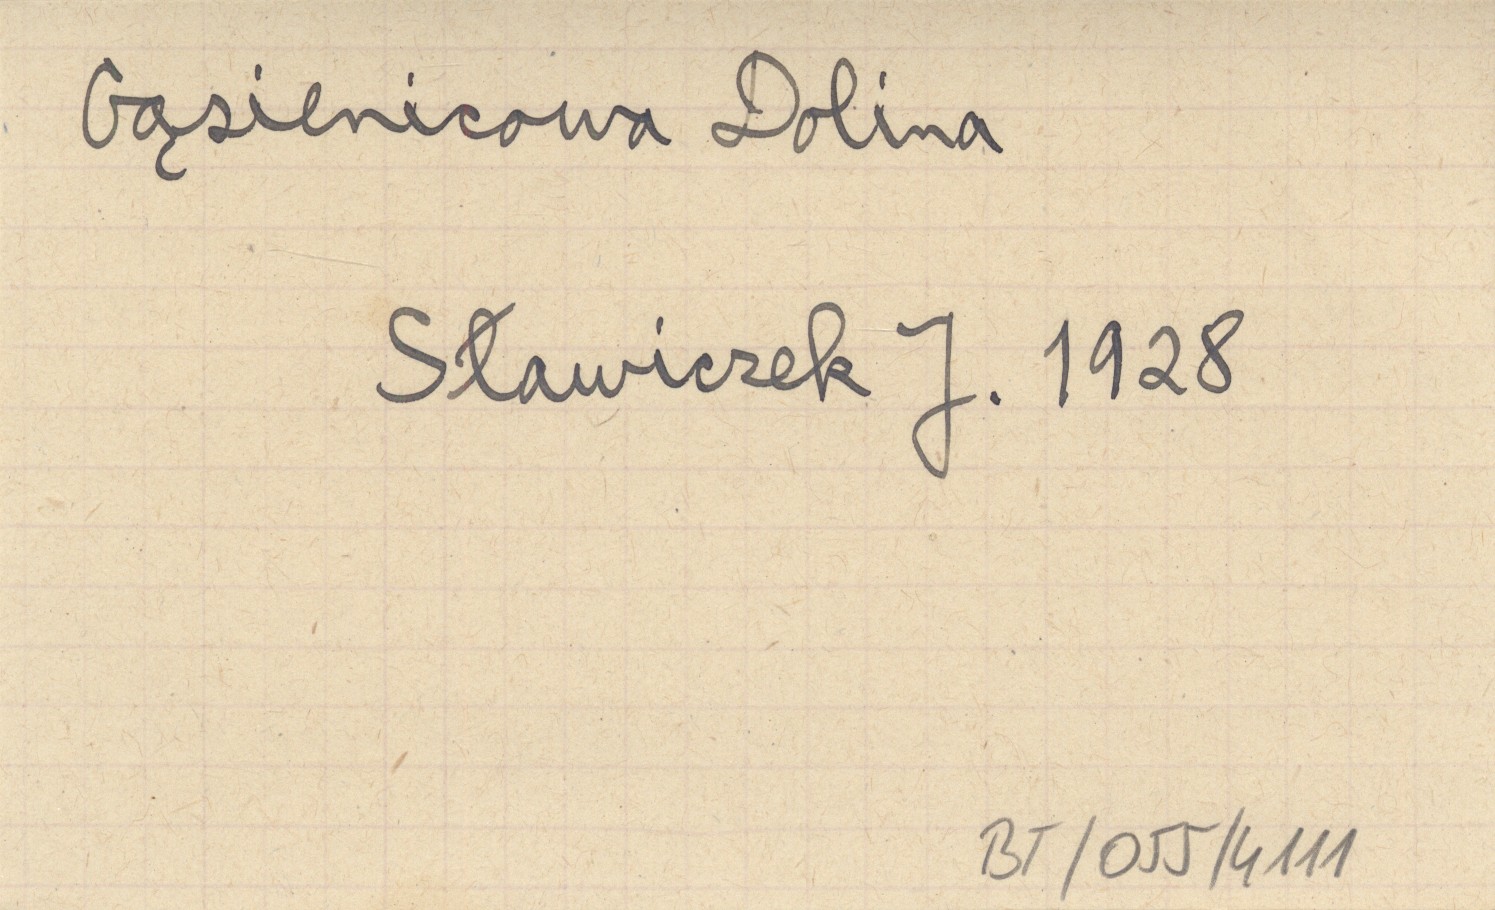 Gąsienicowa Dolina
Sławiczek J. 1928
BT/055/4111